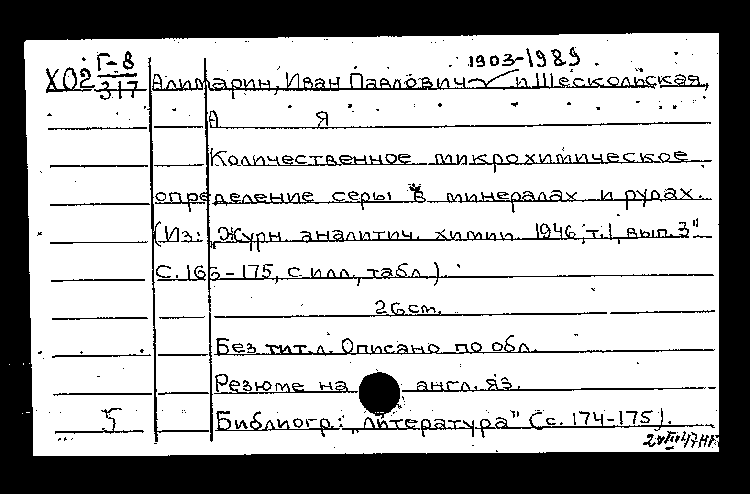 1903-1989
ХО2 Г-8/317 Алимарин, Иван Павлович и Шескольская,
А Я
Количественное микрохимическое
определение серы в минералах и рудах.
(Из: „Журн. аналитич. химии 1946, т.1, вып. 3"
С. 166-175, с илл., табл.).
26 cm.
Без тит. л. Описано по обл.
Резюме на англ. яз.
5 Библиогр.: „Литература" (с. 174-175).